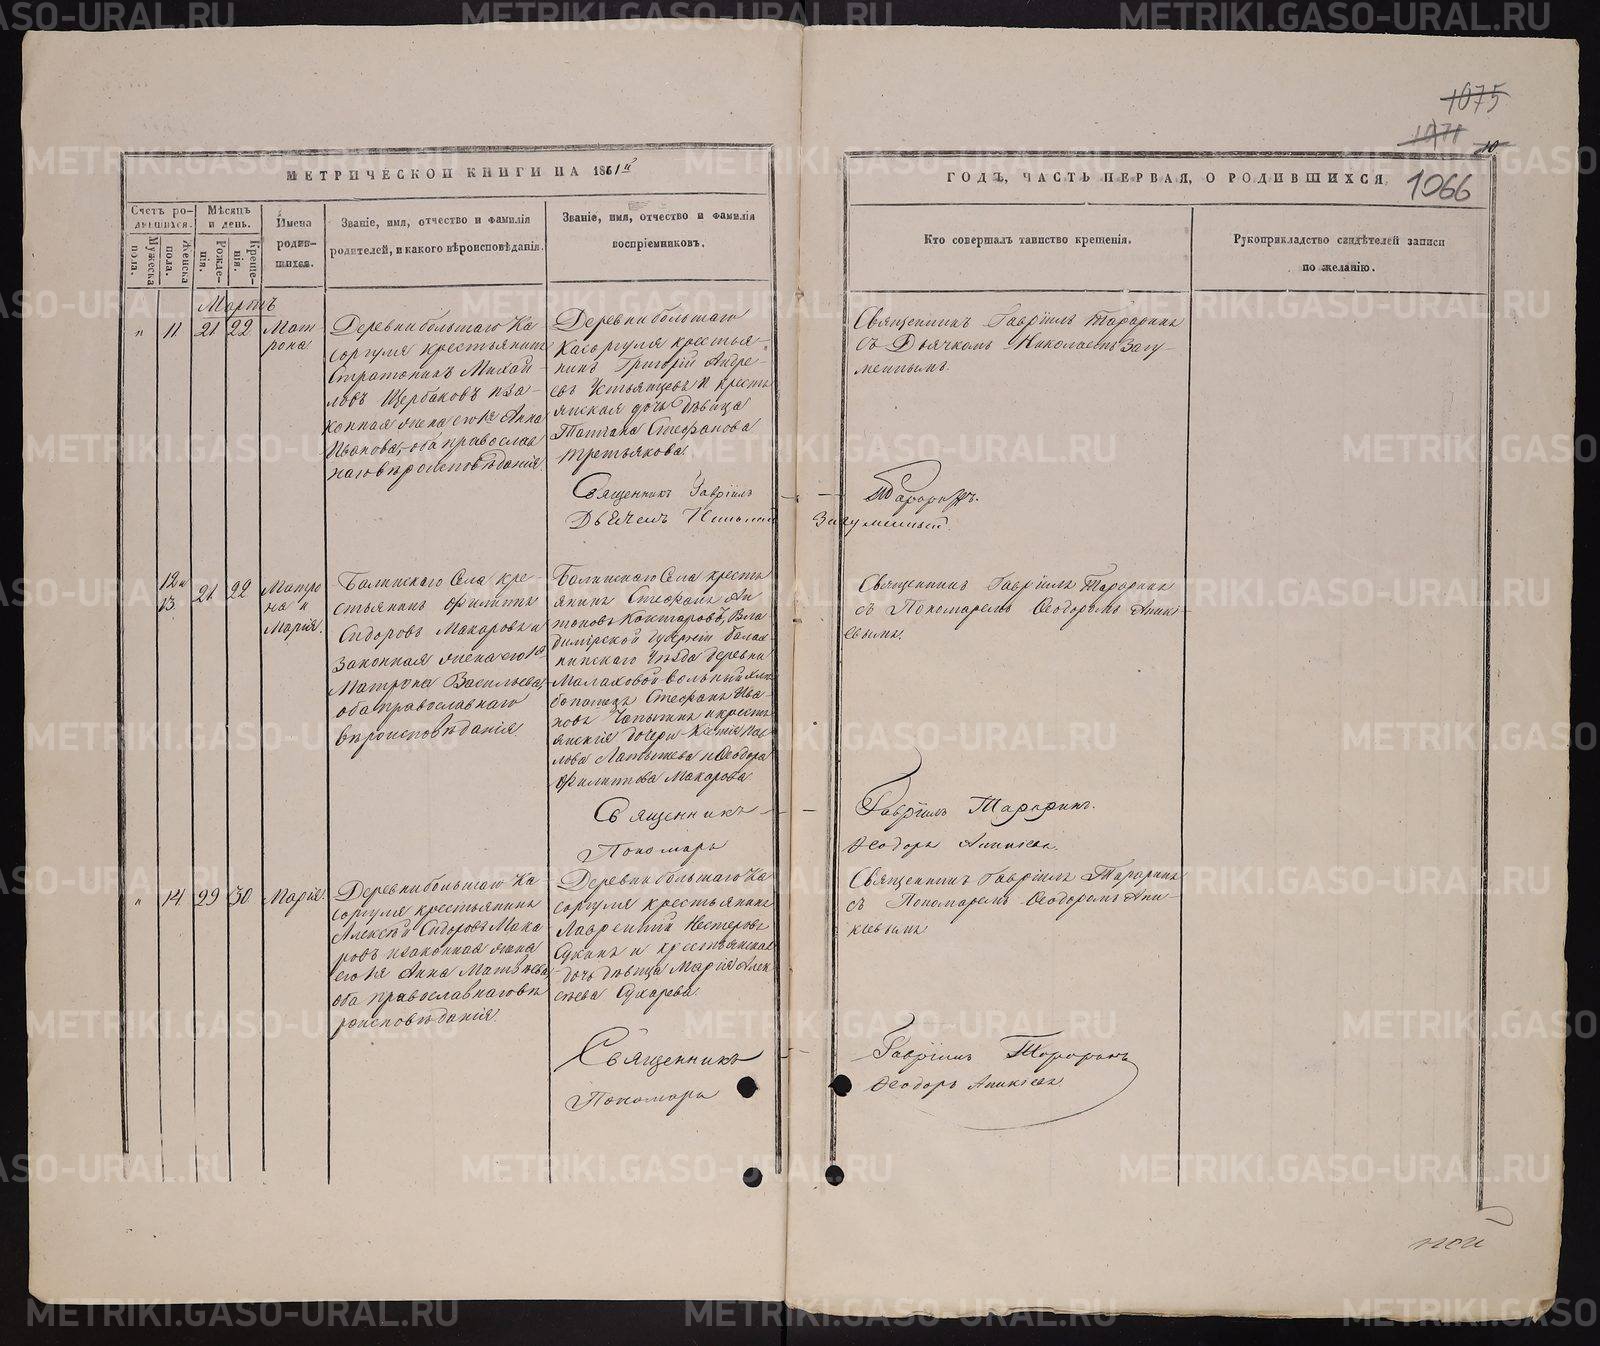 1075
1071
10
1066
МЕТРИЧЕСКОЙ КНИГИ НА 1861й
ГОДЪ, ЧАСТЬ ПЕРВАЯ, О РОДИВШИХСЯ
Счетъ ро-
дившихся.
Мужеска
пола.
Женска
пола.
Мѣсяцъ
и день.
Рожде-
нія.
Креще-
нія.
Имена
родив-
шихся.
Званіе, имя, отчество и фамилія
родителей, и какого вѣроисповѣданія.
Званіе, имя, отчество и фамилія
воспріемниковъ.
Кто совершалъ таинство крещенія.
Рукоприкладство свидѣтелей записи
по желанію.
Мартъ
" 11 21 22
Мат
рона
Деревни большаго Ка
саргуля крестьянинъ
Стратоникъ Михай-
ловъ Щербаковъ и за-
конная жена его 1я Анна
Иванова, оба православ
наго вѣроисповѣданія.
Деревни большаго
Касаргуля крестья-
нинъ Григорій Андре-
евъ Устьянцевъ и кресть
янская дочь дѣвица
Татіана Стефанова
Третьякова.
Священникъ Гавріилъ Тараринъ
съ Дьячкомъ Николаемъ Загу-
меннымъ.
Священникъ Гавріилъ Тараринъ.
Дьячекъ Николай Загуменный.
12 и
13.
21 22
Матро
на и
Марія.
Баликскаго Села кре-
стьянинъ Филиппъ
Сидоровъ Макаровъ и
законная жена его 1я
Матрона Васильева,
оба православнаго
вѣроисповѣданія.
Баликскаго Села кресть
янинъ Стефанъ Ан
тоновъ Кокшаровъ, Вла
димірской Губерніи Балах
нинскаго Уѣзда деревни
Малаховой вольный хлѣ
бопашецъ Стефанъ Ива
новъ Чапыгинъ и кресть
янскія дочери Ксенія Пав
лова Латышева и Ѳеодора
Филиппова Макарова
Священникъ Гавріилъ Тараринъ
съ Пономаремъ Ѳеодоромъ Аники-
евымъ.
Священникъ Гавріилъ Тараринъ.
Пономарь Ѳеодоръ Аникіевъ.
" 14 29 30
Марія.
Деревни большаго Ка
саргуля крестьянинъ
Алексѣй Сидоровъ Мака
ровъ и законная жена
его 1я Анна Матвѣева,
оба православнаго вѣ
роисповѣданія.
Деревни большаго Ка
саргуля крестьянинъ
Лаврентій Нестеровъ
Сукинъ и крестьянская
дочь дѣвица Марія Алек
сѣева Сухарева.
Священникъ Гавріилъ Тараринъ
съ Пономаремъ Ѳеодоромъ Ани-
кіевымъ
Священникъ Гавріилъ Тараринъ
Пономарь Ѳеодоръ Аникіевъ